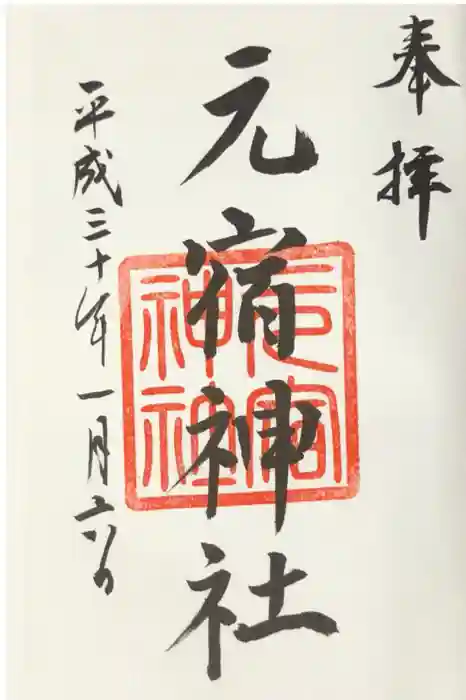 奉拝
元宿神社
元宿神社
平成三十年一月六日